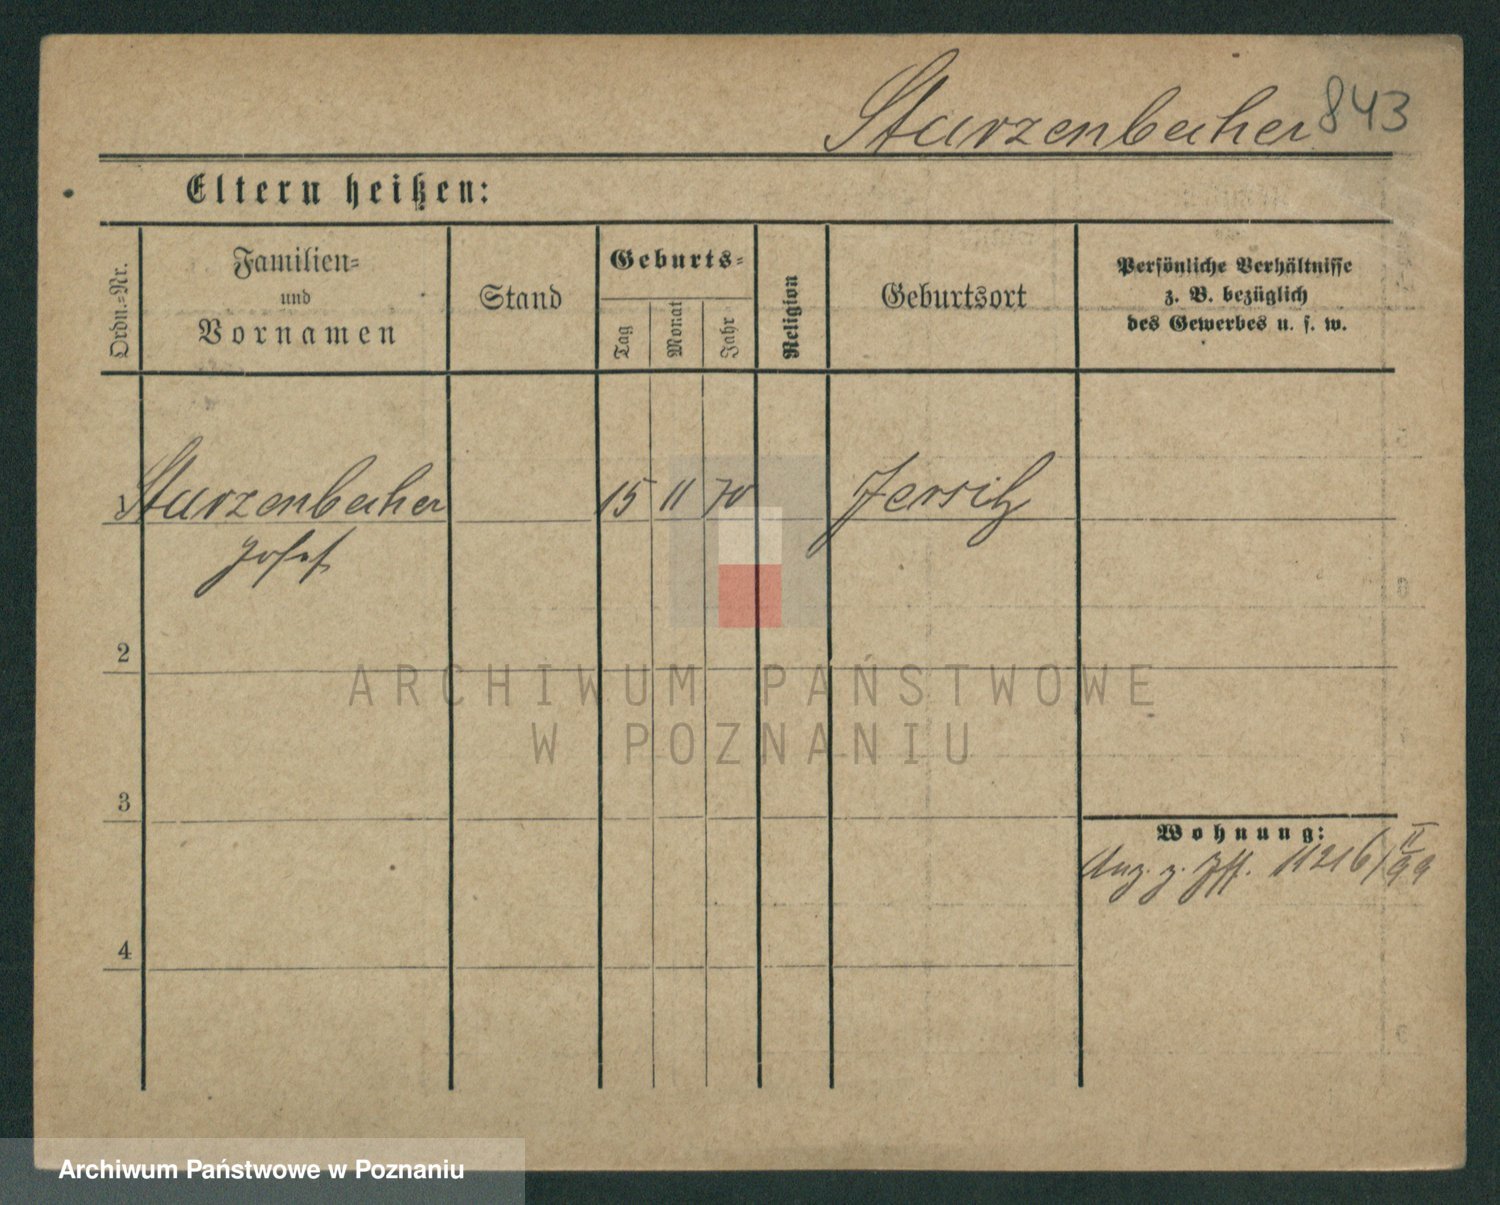 Sturzenbecher 843
Eltern heißen:
Ordn.=Nr.
Familien=
und
Vornamen
Stand
Geburts=
Tag
Monat
Jahr
Religion
Geburtsort
Persönliche Verhältnisse
z. B. bezüglich
des Gewerbes u. s. w.
Sturzenbecher 15 11 70 Jersitz
Josef
2
ARCHIWUM PAŃSTWOWE
W POZNANIU
3
Wohnung:
11216/II 99
4
Archiwum Państwowe w Poznaniu